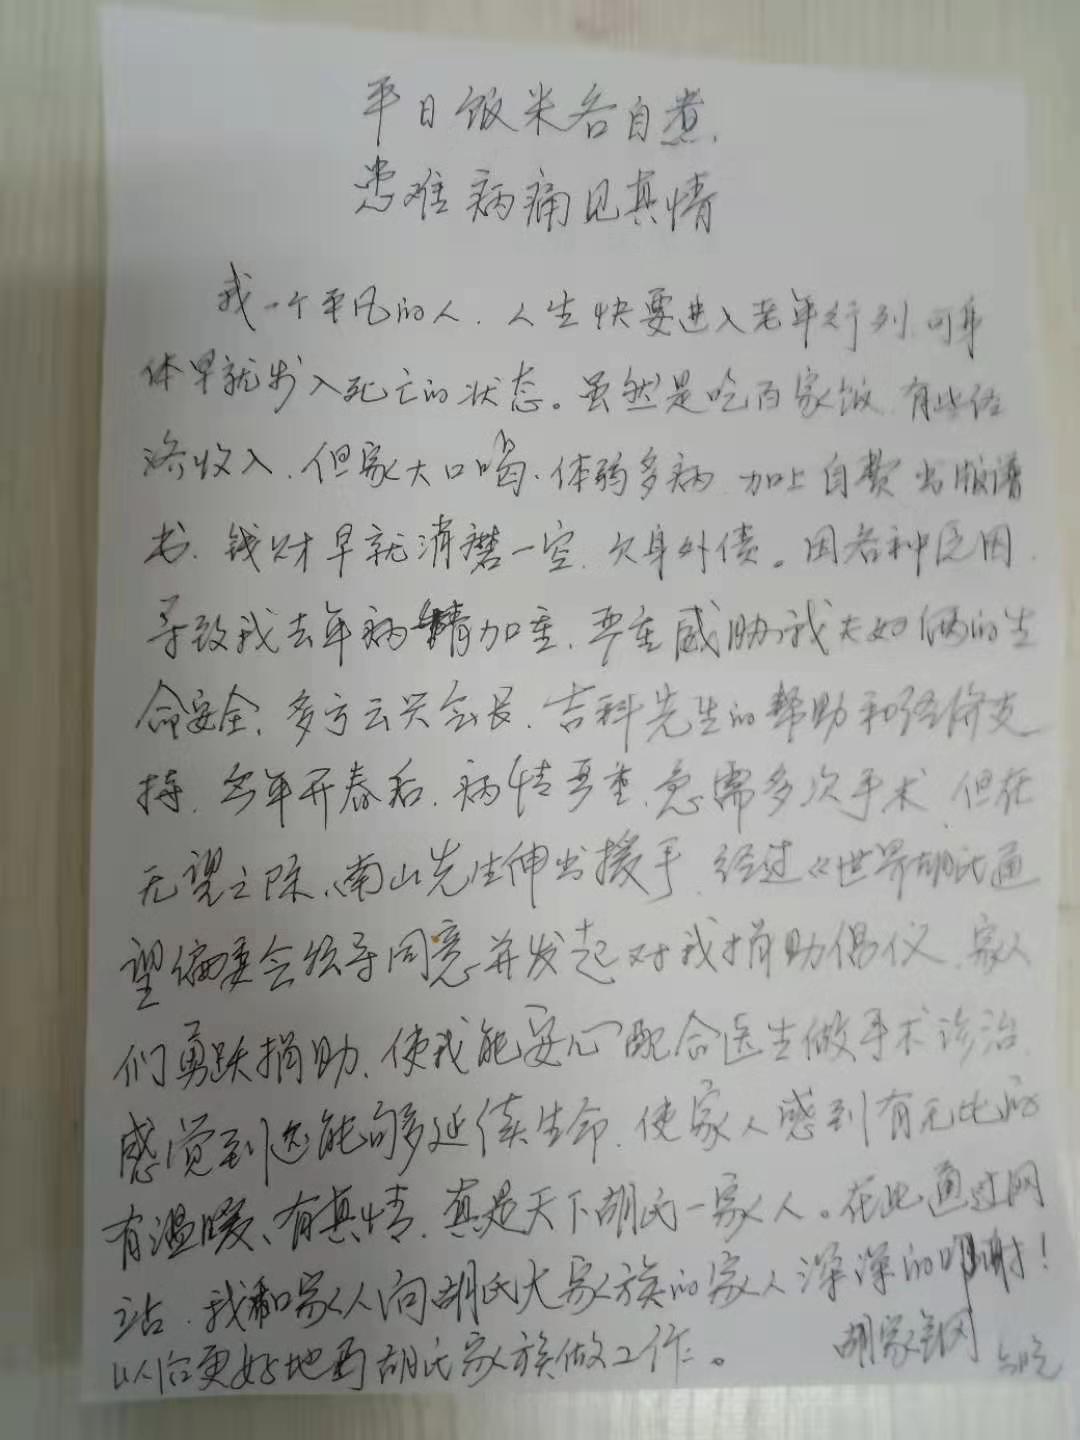 平日饭米各自煮，
患难病痛见真情
我一个平凡的人，人生快要进入老年行列，可身
体早就步入死亡的状态。虽然是吃百家饭，有些经
济收入，但家大口喝，体弱多病，加上自费出版谱
书，钱财早就消磨一空，欠身外债。因各种原因，
导致我去年病情加重，严重威胁我夫妇俩的生
命安全，多亏云兴会长，吉科先生的帮助和经济支
持，今年开春后，病情严重，急需多次手术，但在
无望之际，南山先生伸出援手，经过《世界胡氏通
望编委会领导同意并发起对我捐助倡仪，家人
们勇跃捐助，使我能安心配合医生做手术诊治，
感觉到还能够多延续生命，使家人感到有无比的
有温暖、有真情，真是天下胡氏一家人。在此通过网
站，我和家人向胡氏大家族的家人深深的叩谢！
以后更好地为胡氏家族做工作。
胡家钢